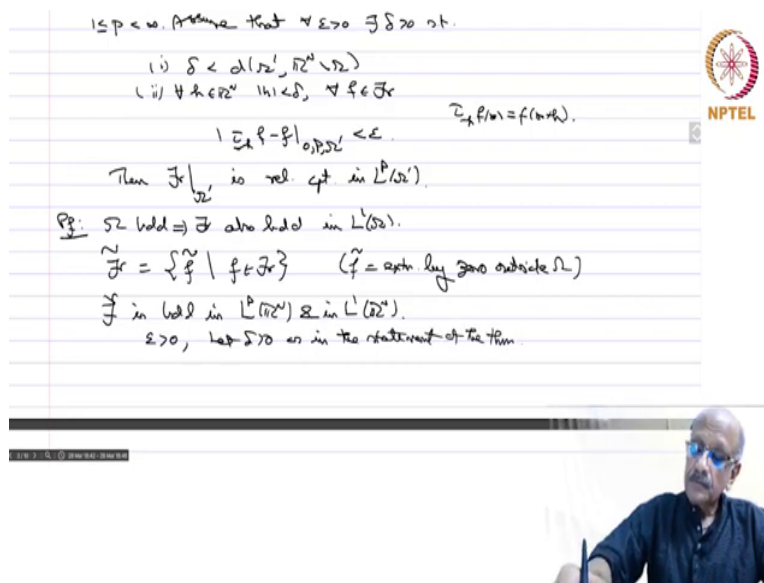 1≤p<∞. Assume that ∀ ε>0 ∃ δ>0 st.
(i) δ < d(Ω', ℝᴺ\Ω)
(ii) ∀ h∈ℝᴺ |h|<δ, ∀ f∈ℱ
τ₋ₕ f(x) = f(x+h).
|τ₋ₕ f - f|₀,ₚ,Ω' < ε.
Then ℱ|Ω' is rel. cpt in Lᵖ(Ω').
Pf: Ω bdd ⇒ ℱ also bdd in L¹(Ω).
ℱ̃ = {f̃ | f∈ℱ} (f̃ = extn. by zero outside Ω)
ℱ̃ is bdd in Lᵖ(ℝᴺ) & in L¹(ℝᴺ).
ε>0, Let δ>0 as in the statement of the thm
NPTEL